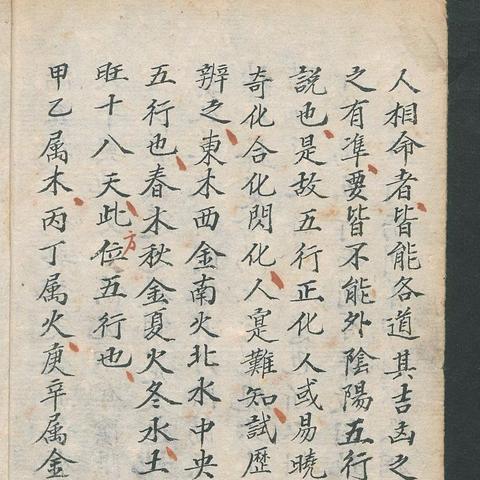 人相命者皆能各道其吉凶之
之有準要皆不能外陰陽五行
說也是故五行正化人或易曉
奇化合化閃化人寔難知試歴
辨之東木西金南火北水中央
五行也春木秋金夏火冬水土
旺十八天此方位五行也
甲乙属木丙丁属火庚辛属金